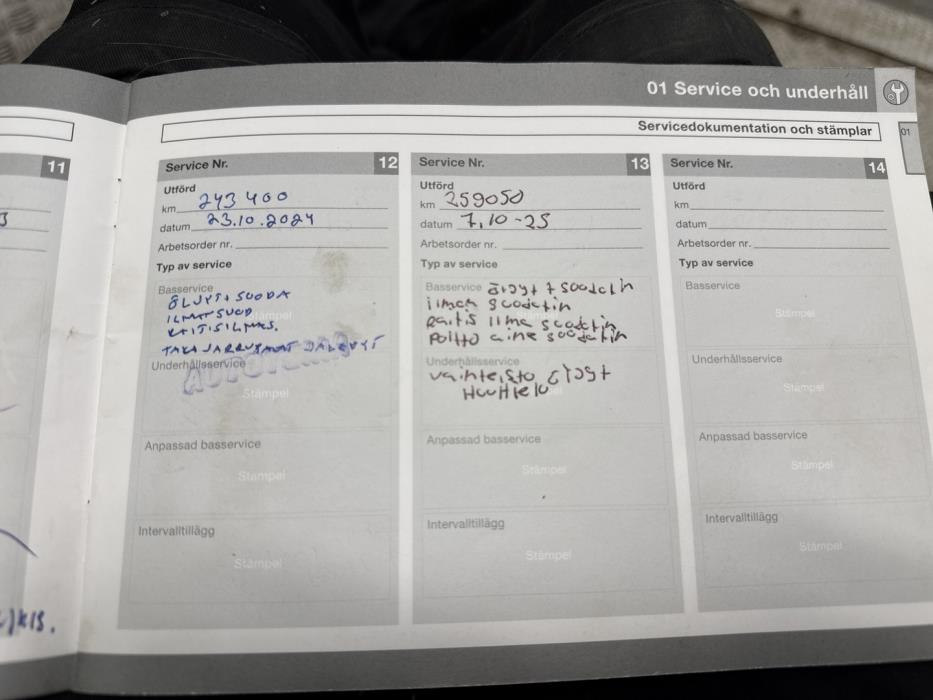 01 Service och underhåll
01
Servicedokumentation och stämplar
11
3
Service Nr. 12
Utförd
km 243 400
datum 23.10.2024
Arbetsorder nr.
Typ av service
Basservice
ÖLJYT+ SUODA
Stämpel
ILMANSUOD
RAITISILMAS.
TAKAJARRUPALAT
Underhållsservice
Stämpel
Anpassad basservice
Stämpel
Intervalltillägg
Stämpel
Service Nr. 13
Utförd
km 259050
datum 7.10-25
Arbetsorder nr.
Typ av service
Basservice öljyt + soodatin
ilman suodatin
Stämpel
raitis ilma suodatin
Poltto aine suodatin
Underhållsservice
vaihteisto öljyt
Huuhtelu
Stämpel
Anpassad basservice
Stämpel
Intervalltillägg
Stämpel
Service Nr. 14
Utförd
km
datum
Arbetsorder nr.
Typ av service
Basservice
Stämpel
Underhållsservice
Stämpel
Anpassad basservice
Stämpel
Intervalltillägg
Stämpel